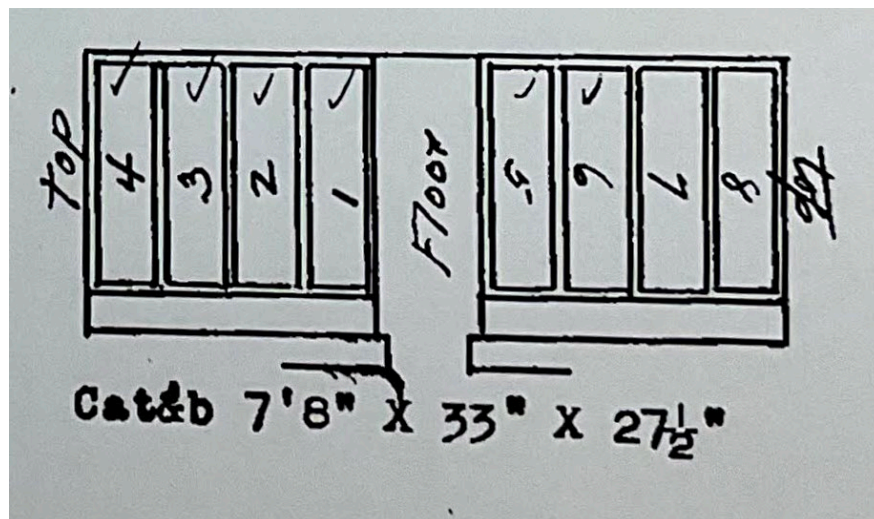 top 4 3 2 1 Floor 5 6 7 8 top
Cat&b 7'8" X 33" X 27½"